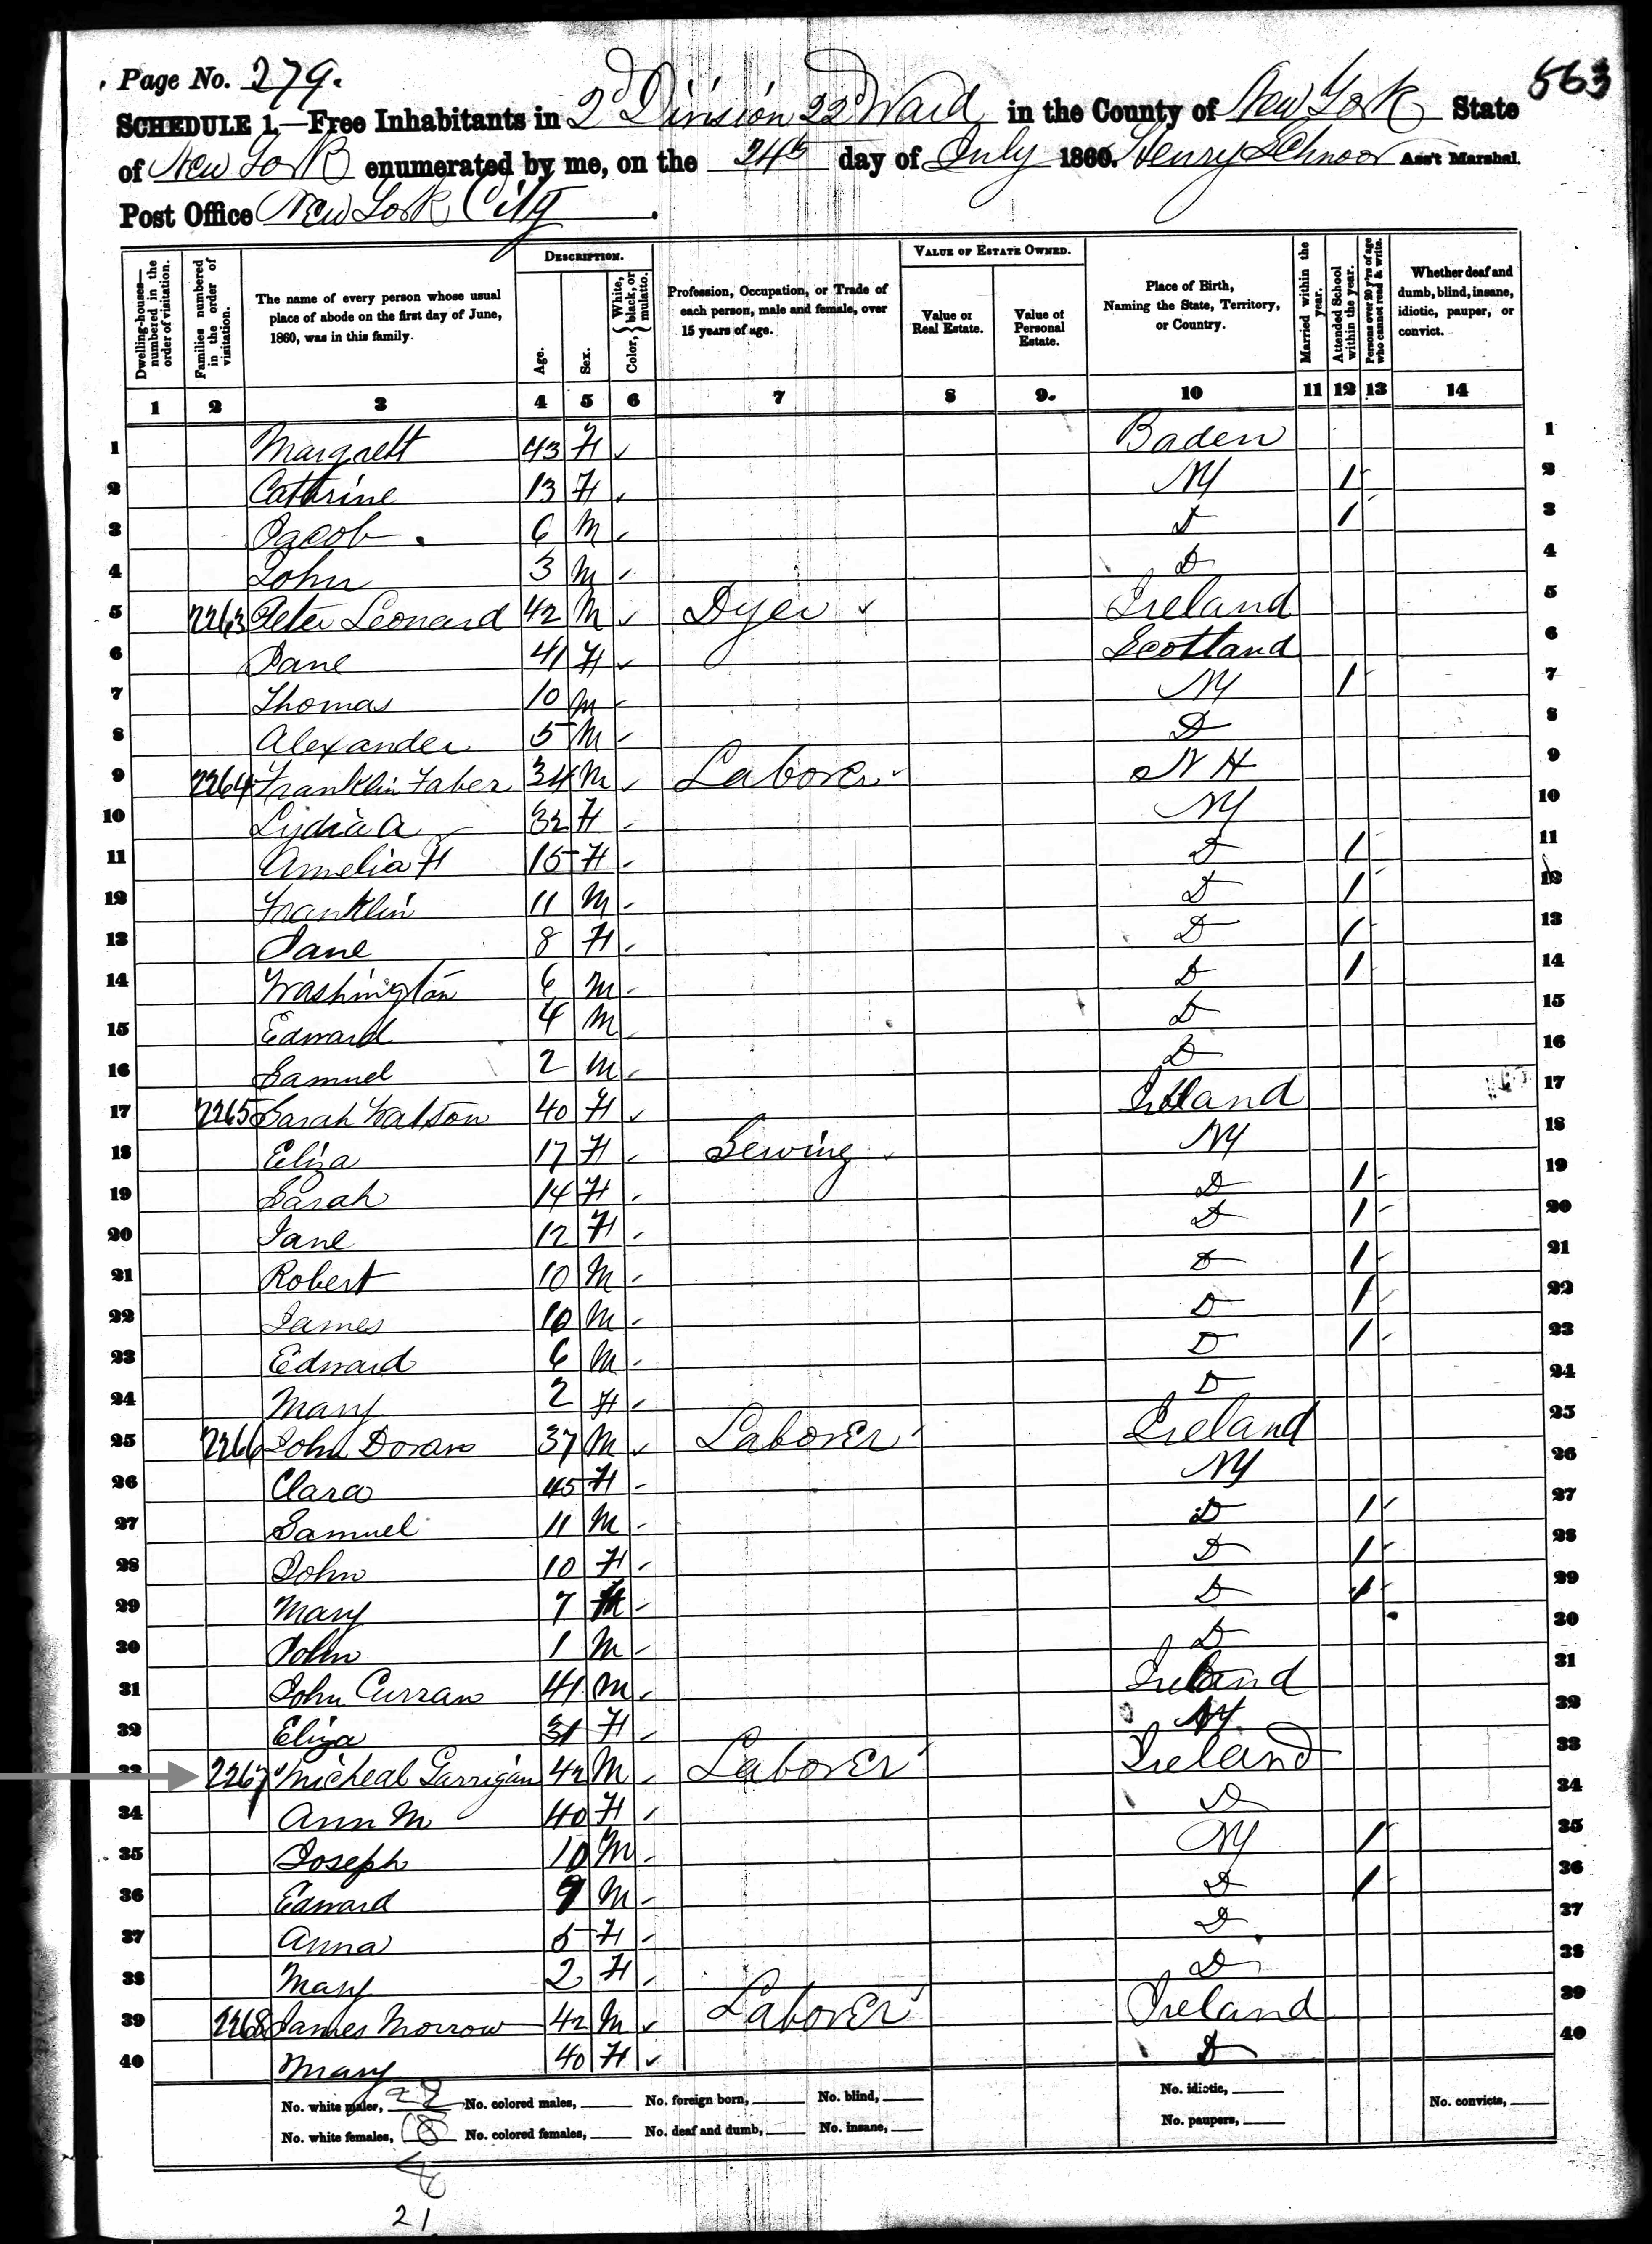 Page No. 279. 563
SCHEDULE 1.—Free Inhabitants in 2d Division 22d Ward in the County of New York State
of New York enumerated by me, on the 24th day of July 1860. Henry Schnoor Ass't Marshal.
Post Office New York City.
Dwelling-houses—numbered in the order of visitation. Families numbered in the order of visitation. The name of every person whose usual place of abode on the first day of June, 1860, was in this family. DESCRIPTION. Age. Sex. Color, { White, black, or mulatto. Profession, Occupation, or Trade of each person, male and female, over 15 years of age. VALUE OF ESTATE OWNED. Value of Real Estate. Value of Personal Estate. Place of Birth, Naming the State, Territory, or Country. Married within the year. Attended School within the year. Persons over 20 y'rs of age who cannot read & write. Whether deaf and dumb, blind, insane, idiotic, pauper, or convict.
1 2 3 4 5 6 7 8 9. 10 11 12 13 14
1 Margrett 43 F Baden 1
2 Cathrine 13 F NY 1 2
3 Jacob 6 M D 1 3
4 John 3 M D 4
5 2263 Peter Leonard 42 M Dyer Ireland 5
6 Jane 41 F Scotland 6
7 Thomas 10 M NY 1 7
8 Alexander 5 M D 8
9 2264 Franklin Faber 34 M Laborer N H 9
10 Lydia A 32 F NY 10
11 Amelia F 15 F D 1 11
12 Franklin 11 M D 1 12
13 Jane 8 F D 1 13
14 Washington 6 M D 1 14
15 Edward 4 M D 15
16 Samuel 2 M D 16
17 2265 Sarah Watson 40 F Ireland 17
18 Eliza 17 F Sewing NY 18
19 Sarah 14 F D 1 19
20 Jane 12 F D 1 20
21 Robert 10 M D 1 21
22 James 10 M D 1 22
23 Edward 6 M D 1 23
24 Mary 2 F D 24
25 2266 John Doran 37 M Laborer Ireland 25
26 Clara 45 F NY 26
27 Samuel 11 M D 1 27
28 John 10 F D 1 28
29 Mary 7 D 1 29
30 John 1 M D 30
31 John Curran 41 M Ireland 31
32 Eliza 31 F NY 32
33 2267 Micheal Garrigan 42 M Laborer Ireland 33
34 Ann M 40 F D 34
35 Joseph 10 M NY 1 35
36 Edward 9 M D 1 36
37 Anna 5 F D 37
38 Mary 2 F D 38
39 2268 James Morrow 42 M Laborer Ireland 39
40 Mary 40 F D 40
No. white males, 22 No. colored males, No. foreign born, No. blind, No. idiotic, No. convicts,
No. white females, 18 No. colored females, No. deaf and dumb, No. insane, No. paupers,
21